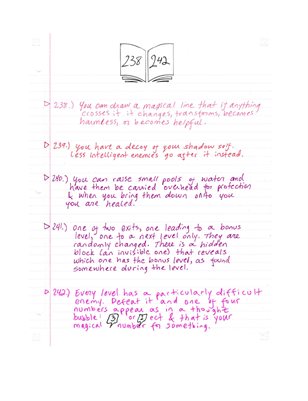 238 242
▷ 238.) You can draw a magical line that if anything
crosses it it changes, transforms, becomes
harmless, or becomes helpful.
▷ 239.) You have a decoy of your shadow self.
Less intelligent enemies go after it instead.
▷ 240.) You can raise small pools of water and
have them be carried overhead for protection
& when you bring them down onto you
you are healed.
▷ 241.) One of two exits, one leading to a bonus
level, one to a next level only. They are
randomly changed. There is a hidden
block (an invisible one) that reveals
which one has the bonus level, as found
somewhere during the level.
▷ 242.) Every level has a particularly difficult
enemy. Defeat it and one of four
numbers appear as in a thought
bubble! 3 or 2 ect & that is your
magical number for something.